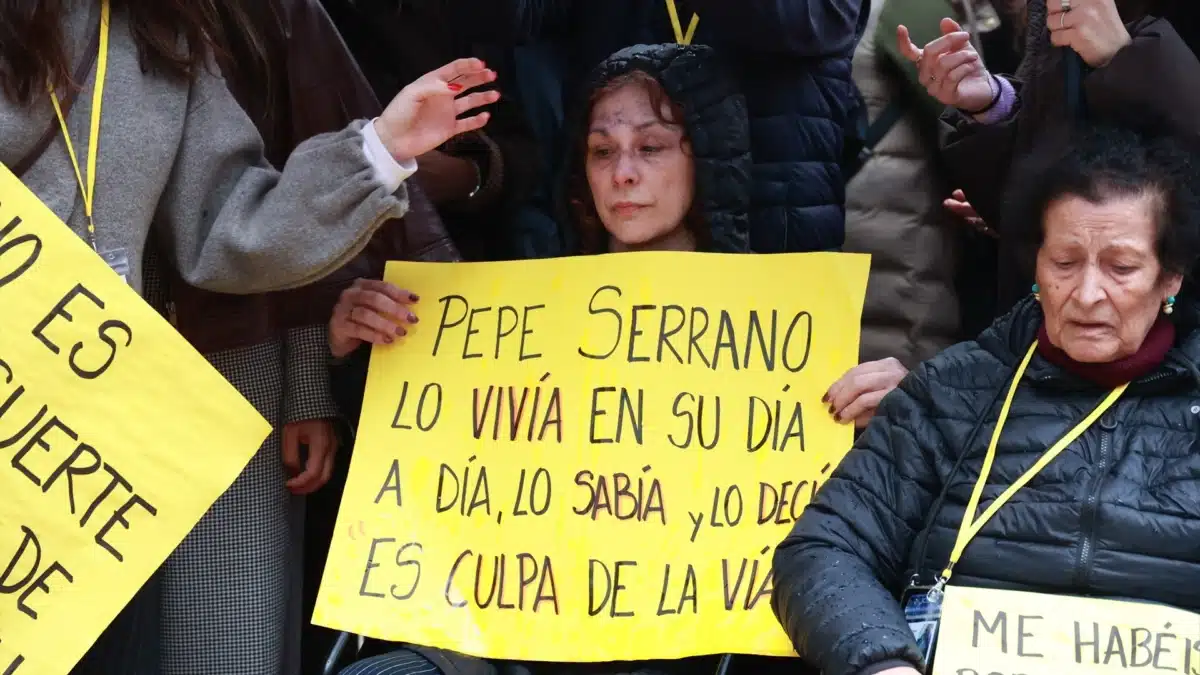 NO ES
SUERTE
DE
PEPE SERRANO
LO VIVÍA EN SU DÍA
A DÍA, LO SABÍA Y LO DECÍA
"ES CULPA DE LA VÍA
ME HABÉIS